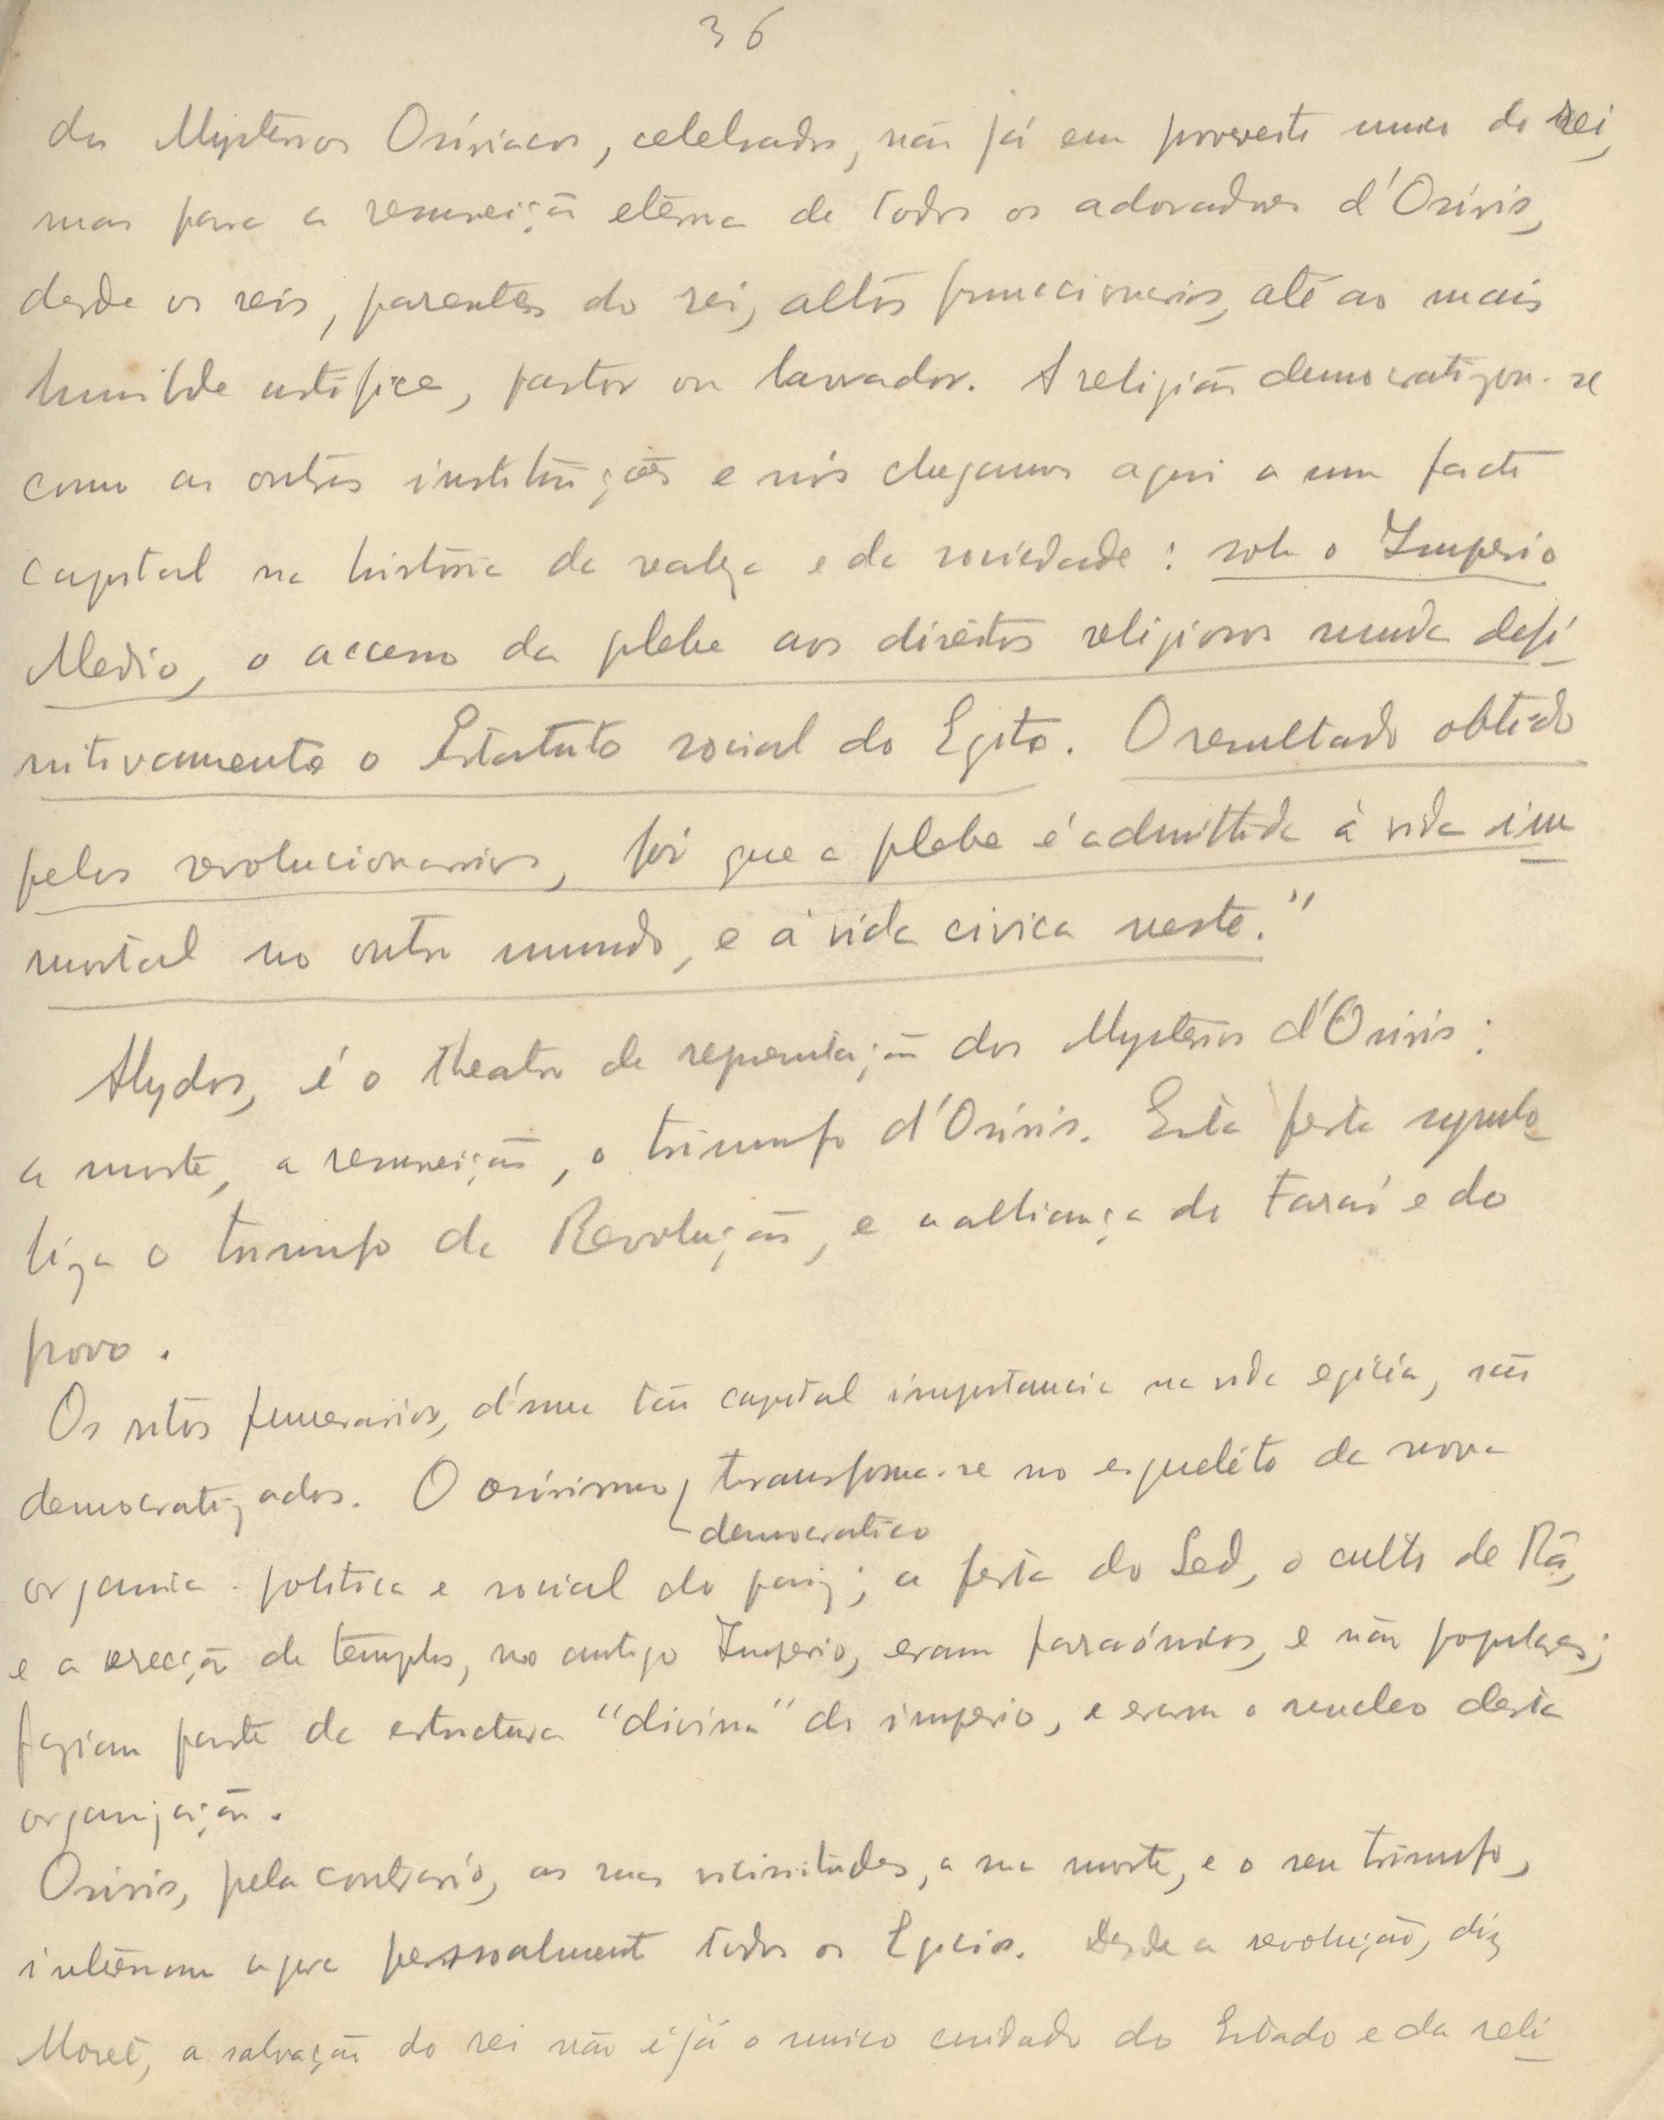 36
dos Mysterios Osiriacos, celebrados, não já em proveito unico do rei,
mas para a resurreição eterna de todos os adoradores d'Osiris,
desde os reis, parentes do rei, altos funccionarios, até ao mais
humilde artifice, pastor ou lavrador. A religião democratizou-se
como as outras instituições e nós chegamos aqui a um facto
capital na história da realeza e da sociedade: sob o Imperio
Medio, o accesso da plebe aos direitos religiosos muda defi-
nitivamente o Estatuto social do Egito. O resultado obtido
pelos revolucionarios, foi que a plebe é admittida á vida im-
mortal no outro mundo, e á vida civica neste."
Abydos, é o theatro da representação dos Mysterios d'Osiris:
a morte, a resurreição, o triumfo d'Osiris. Esta festa symbo-
liza o triumfo da Revolução, e a alliança do Faraó e do
povo.
Os ritos funerarios, d'uma tão capital importancia na vida egicia, são
democratizados. O osirismo transforma-se no esqueléto da nova
democratico
organica politica e social do paiz; a festa do Sed, o culto de Râ,
e a ereção de templos, no antigo Imperio, eram faraónicos, e não populares;
faziam parte da estructura "divina" do imperio, e eram o nucleo desta
organização.
Osiris, pelo contrario, as suas vicissitudes, a sua morte, e o seu triumfo,
interessam agora pessoalmente todos os Egicios. Desde a revolução, diz
Moret, a salvação do rei não é já o unico cuidado do Estado e da reli-